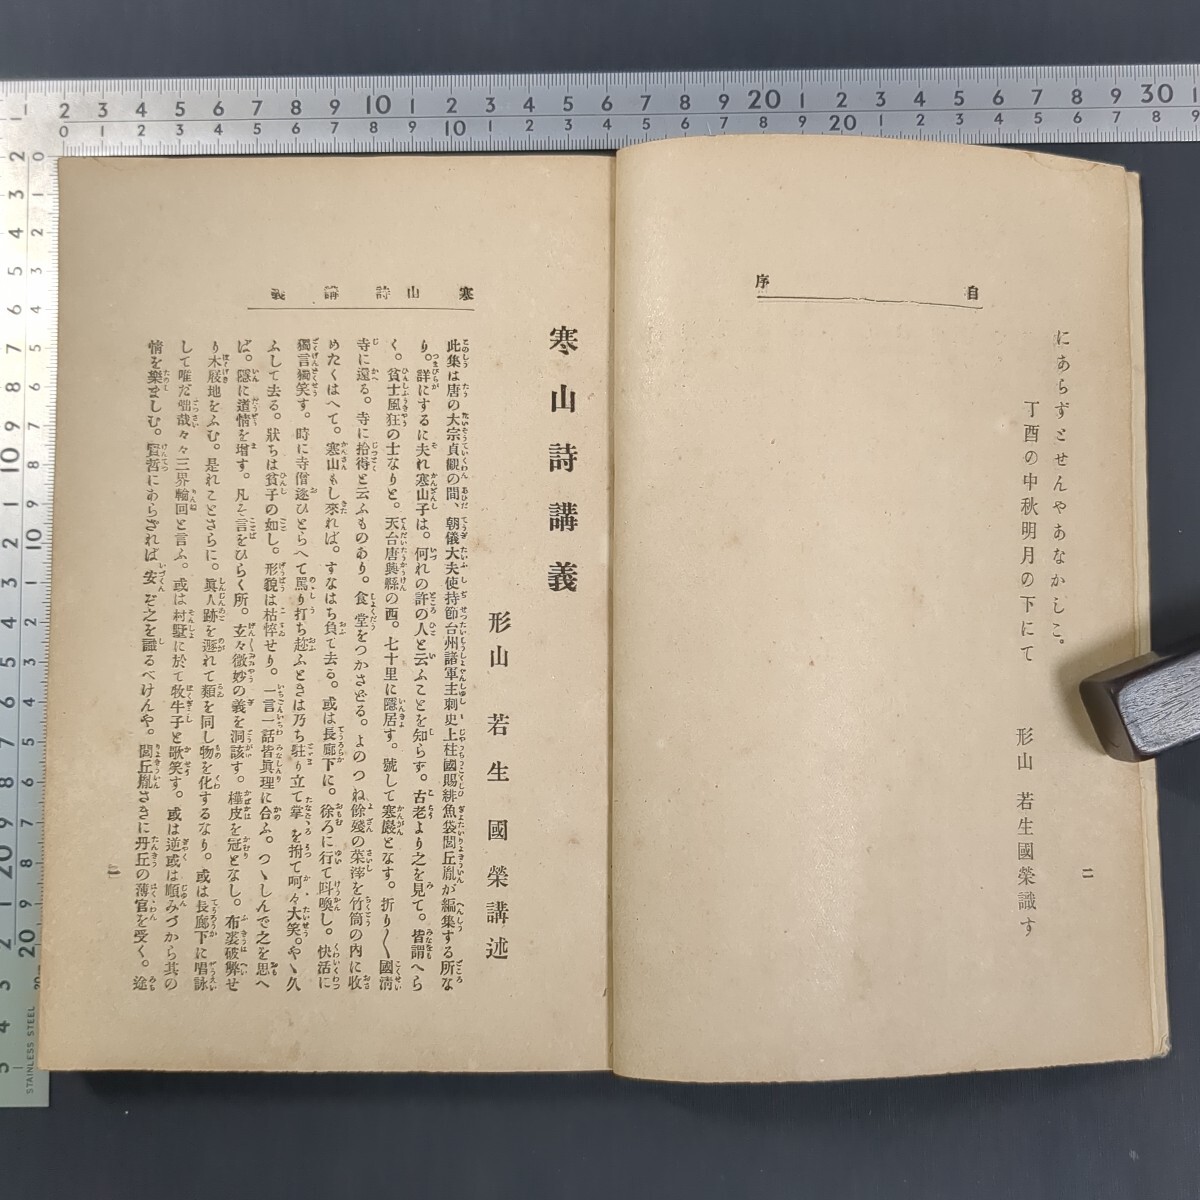 自序
にあらずとせんやあなかしこ。
丁酉の中秋明月の下にて
形山 若生國榮識す
二
寒山詩講義
寒山詩講義
形山 若生國榮講述
此集は唐の大宗貞觀の間、朝儀大夫使持節台州諸軍主刺史上柱國賜緋魚袋閭丘胤が編集する所な
り。詳にするに夫れ寒山子は。何れの許の人と云ふことを知らず。古老より之を見て。皆謂へら
く。貧士風狂の士なりと。天台唐興縣の西。七十里に隱居す。號して寒巖となす。折り〱國淸
寺に還る。寺に拾得と云ふものあり。食堂をつかさどる。よのつね餘殘の菜滓を竹筒の内に收
めたくはへて。寒山もし來れば。すなはち負て去る。或は長廊下に。徐ろに行て呌喚し。快活に
獨言獨笑す。時に寺僧逐ひとらへて罵り打ち趂ふときは乃ち駐り立て掌を拊て呵々大笑。やゝ久
ふして去る。狀ちは貧子の如し。形貌は枯悴せり。一言一話皆眞理に合ふ。つゝしんで之を思へ
ば。隱に道情を增す。凡そ言をひらく所。玄々微妙の義を洞該す。樺皮を冠となし。布裘破弊せ
り木屐地をふむ。是れことさらに。眞人跡を遯れて類を同し物を化するなり。或は長廊下に唱詠
して唯だ咄哉々々三界輪回と言ふ。或は村墅に於て牧牛子と歌笑す。或は逆或は順みづから其の
情を樂ましむ。賢哲にあらざれば安ぞ之を識るべけんや。閭丘胤さきに丹丘の薄官を受く。途
一
STAINLESS STEEL